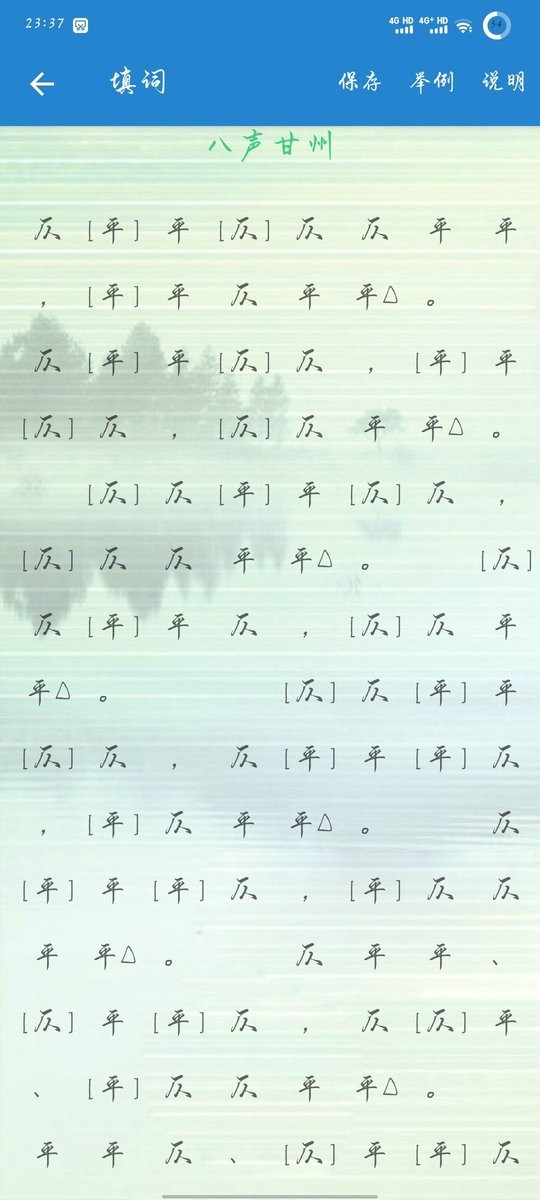 23:37 4G HD 4G+ HD 54
填词 保存 举例 说明
八声甘州
仄 [平] 平 [仄] 仄 仄 平 平
， [平] 平 仄 平 平△ 。
仄 [平] 平 [仄] 仄 ， [平] 平
[仄] 仄 ， [仄] 仄 平 平△ 。
[仄] 仄 [平] 平 [仄] 仄 ，
[仄] 仄 仄 平 平△ 。 [仄]
仄 [平] 平 仄 ， [仄] 仄 平
平△ 。 [仄] 仄 [平] 平
[仄] 仄 ， 仄 [平] 平 [平] 仄
， [平] 仄 平 平△ 。 仄
[平] 平 [平] 仄 ， [平] 仄 仄
平 平△ 。 仄 平 平 、
[仄] 平 [平] 仄 ， 仄 [仄] 平
、 [平] 仄 仄 平 平△ 。
平 平 仄 、 [仄] 平 [平] 仄